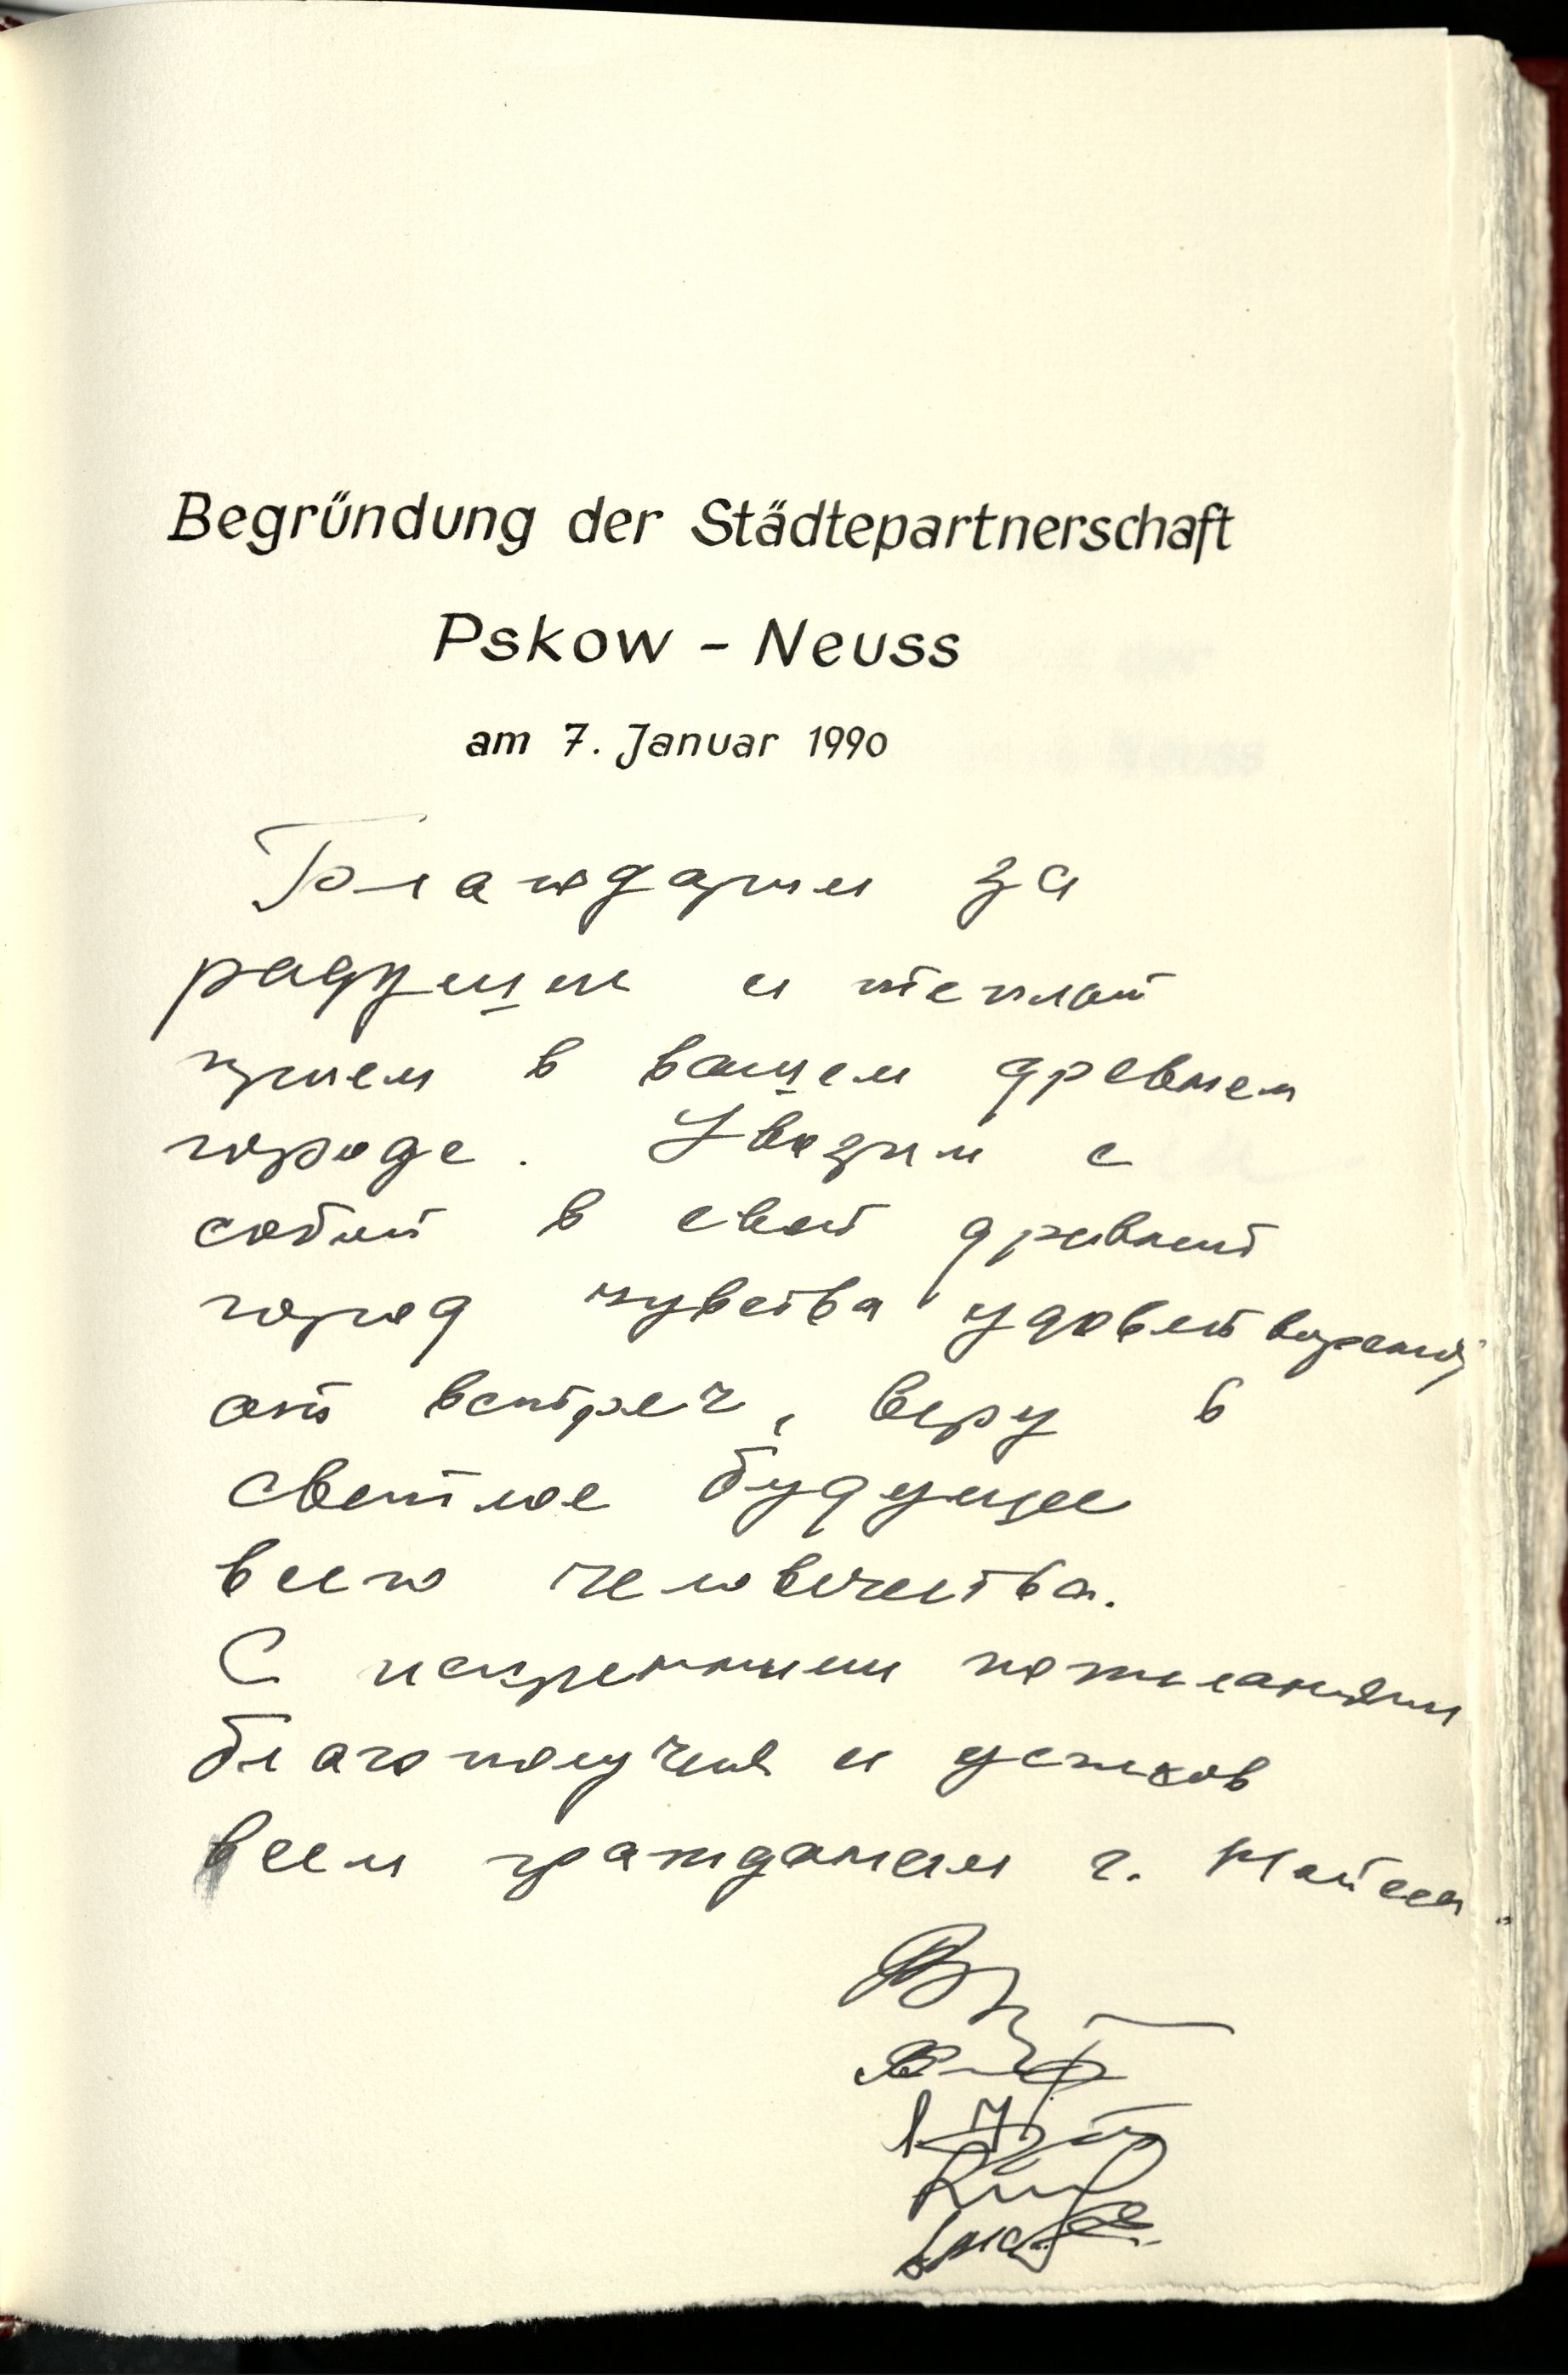 Begründung der Städtepartnerschaft
Pskow – Neuss
am 7. Januar 1990
Благодарим за
радушный и теплый
прием в вашем древнем
городе. Увозим с
собой в свой древний
город чувства удовлетворения
от встреч, веру в
светлое будущее
всего человечества.
С искренними пожеланиями
благополучия и успехов
всем гражданам г. Найсса.